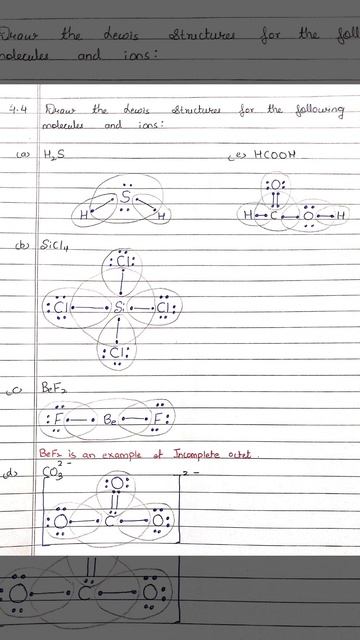 Draw the Lewis Structures for the foll
molecules and ions:
4.4 Draw the Lewis Structures for the following
molecules and ions:
(a) H2S (e) HCOOH
S
H H
O
H C O H
(b) SiCl4
Cl
Cl Si Cl
Cl
(c) BeF2
F Be F
BeF2 is an example of Incomplete octet.
(d) CO3 2-
O 2-
O C O
O C O